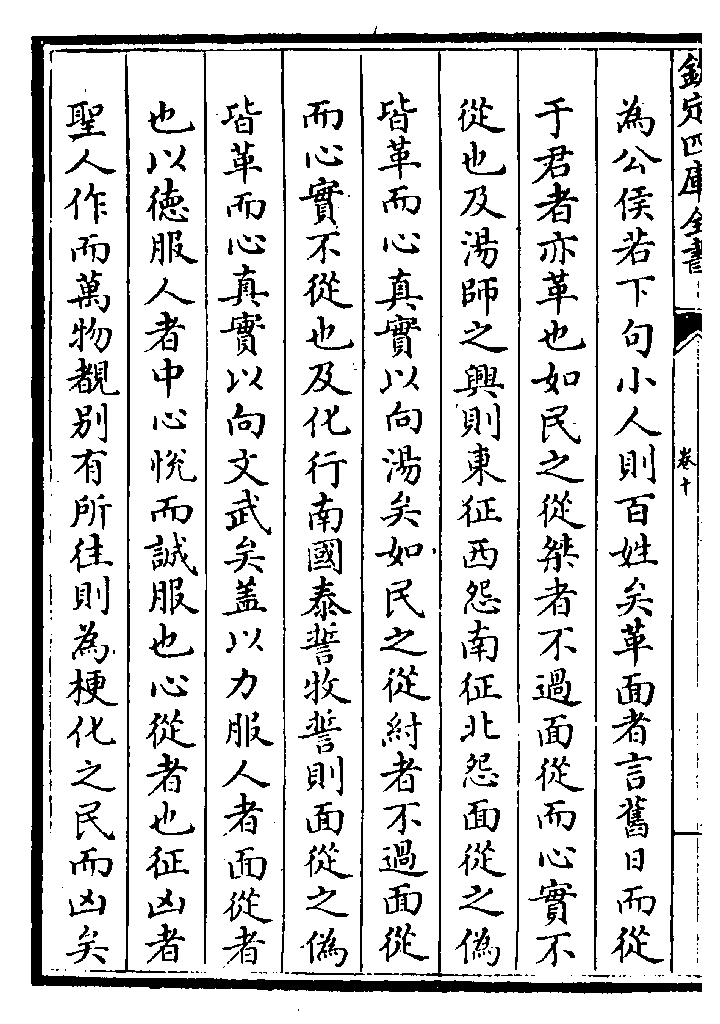 欽定四庫全書
卷十
為公侯若下句小人則百姓矣革面者言舊日而從
于君者亦革也如民之從桀者不過面從而心實不
從也及湯師之興則東征西怨南征北怨面從之偽
皆革而心真實以向湯矣如民之從紂者不過面從
而心實不從也及化行南國泰誓牧誓則面從之偽
皆革而心真實以向文武矣盖以力服人者面從者
也以德服人者中心悅而誠服也心從者也征凶者
聖人作而萬物覩别有所往則為梗化之民而凶矣